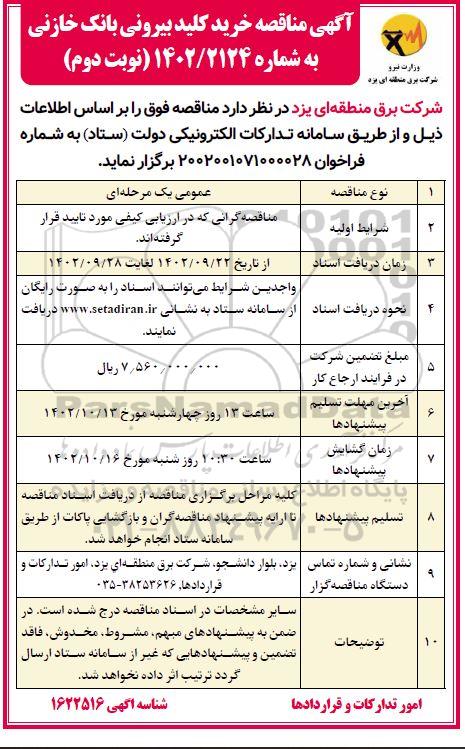 آگهی مناقصه خرید کلید بیرونی بانک خازنی
به شماره ۱۴۰۲/۲۱۲۴ (نوبت دوم)
وزارت نیرو
شرکت برق منطقه ای یزد
شرکت برق منطقه‌ای یزد در نظر دارد مناقصه فوق را بر اساس اطلاعات
ذیل و از طریق سامانه تدارکات الکترونیکی دولت (ستاد) به شماره
فراخوان ۲۰۰۲۰۰۱۰۷۱۰۰۰۰۲۸ برگزار نماید.
۱ نوع مناقصه عمومی یک مرحله‌ای
۲ شرایط اولیه مناقصه‌گرانی که در ارزیابی کیفی مورد تایید قرار
گرفته‌اند.
۳ زمان دریافت اسناد از تاریخ ۱۴۰۲/۰۹/۲۲ لغایت ۱۴۰۲/۰۹/۲۸
۴ نحوه دریافت اسناد واجدین شرایط می‌توانند اسناد را به صورت رایگان
از سامانه ستاد به نشانی www.setadiran.ir دریافت
نمایند.
۵ مبلغ تضمین شرکت
در فرایند ارجاع کار
۷٫۵۶۰٫۰۰۰٫۰۰۰ ریال
۶ آخرین مهلت تسلیم
پیشنهادها
ساعت ۱۳ روز چهارشنبه مورخ ۱۴۰۲/۱۰/۱۳
۷ زمان گشایش
پیشنهادها
ساعت ۱۰:۳۰ روز شنبه مورخ ۱۴۰۲/۱۰/۱۶
۸ تسلیم پیشنهادها کلیه مراحل برگزاری مناقصه از دریافت اسناد مناقصه
تا ارایه پیشنهاد مناقصه‌گران و بازگشایی پاکات از طریق
سامانه ستاد انجام خواهد شد.
۹ نشانی و شماره تماس
دستگاه مناقصه‌گزار
یزد، بلوار دانشجو، شرکت برق منطقه‌ای یزد، امور تدارکات و
قراردادها، ۳۸۲۵۳۶۲۶-۰۳۵
۱۰ توضیحات سایر مشخصات در اسناد مناقصه درج شده است. در
ضمن به پیشنهادهای مبهم، مشروط، مخدوش، فاقد
تضمین و پیشنهادهایی که غیر از سامانه ستاد ارسال
گردد ترتیب اثر داده نخواهد شد.
امور تدارکات و قراردادها
شناسه آگهی ۱۶۲۲۵۱۶
ParsNamadData